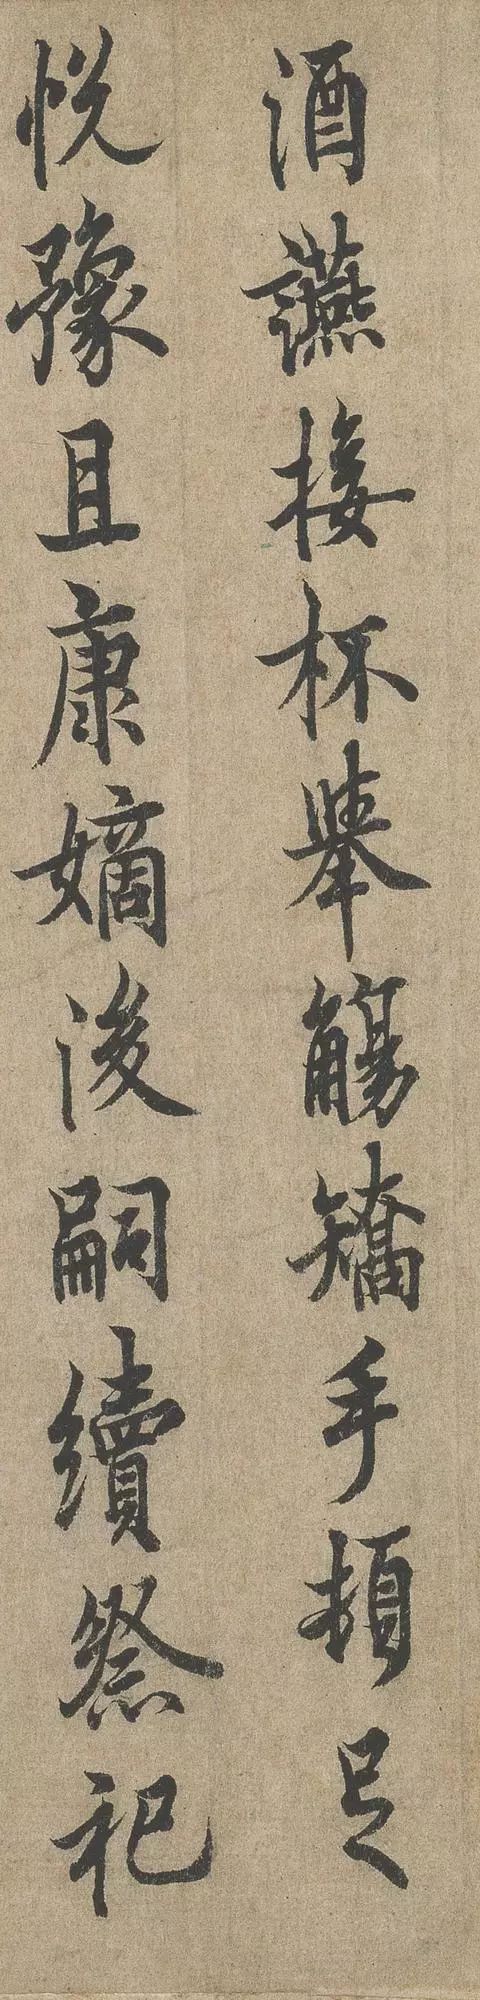 酒讌接杯舉觴矯手頓足
悦豫且康嫡後嗣續祭祀